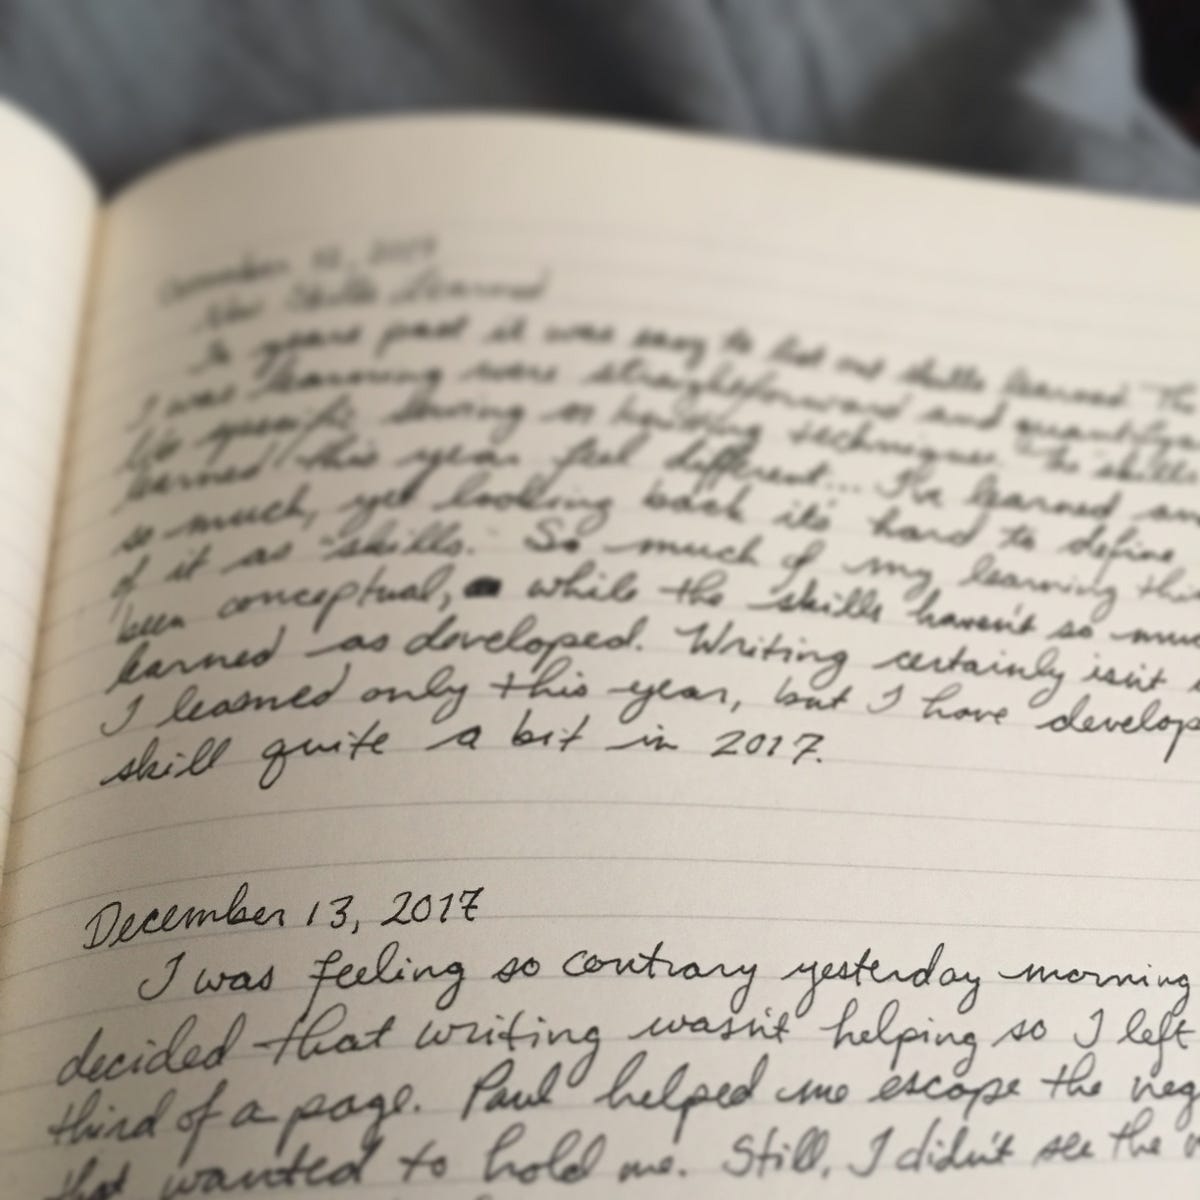 December 12, 2017
New Skills Learned
In years past it was easy to list our skills learned. The
I was learning were straightforward and
like specific techniques. The skills
learned this year feel different... I've learned
so much, yet looking back it's hard to define
of it as "skills." So much of my learning this
been conceptual, while the skills haven't so much
learned as developed. Writing certainly isn't
I learned only this year, but I have
skill quite a bit in 2017.
December 13, 2017
I was feeling so contrary yesterday morning
decided that writing wasn't helping so I left
third of a page. Paul helped me escape the neg
that wanted to hold me. Still, I didn't see the